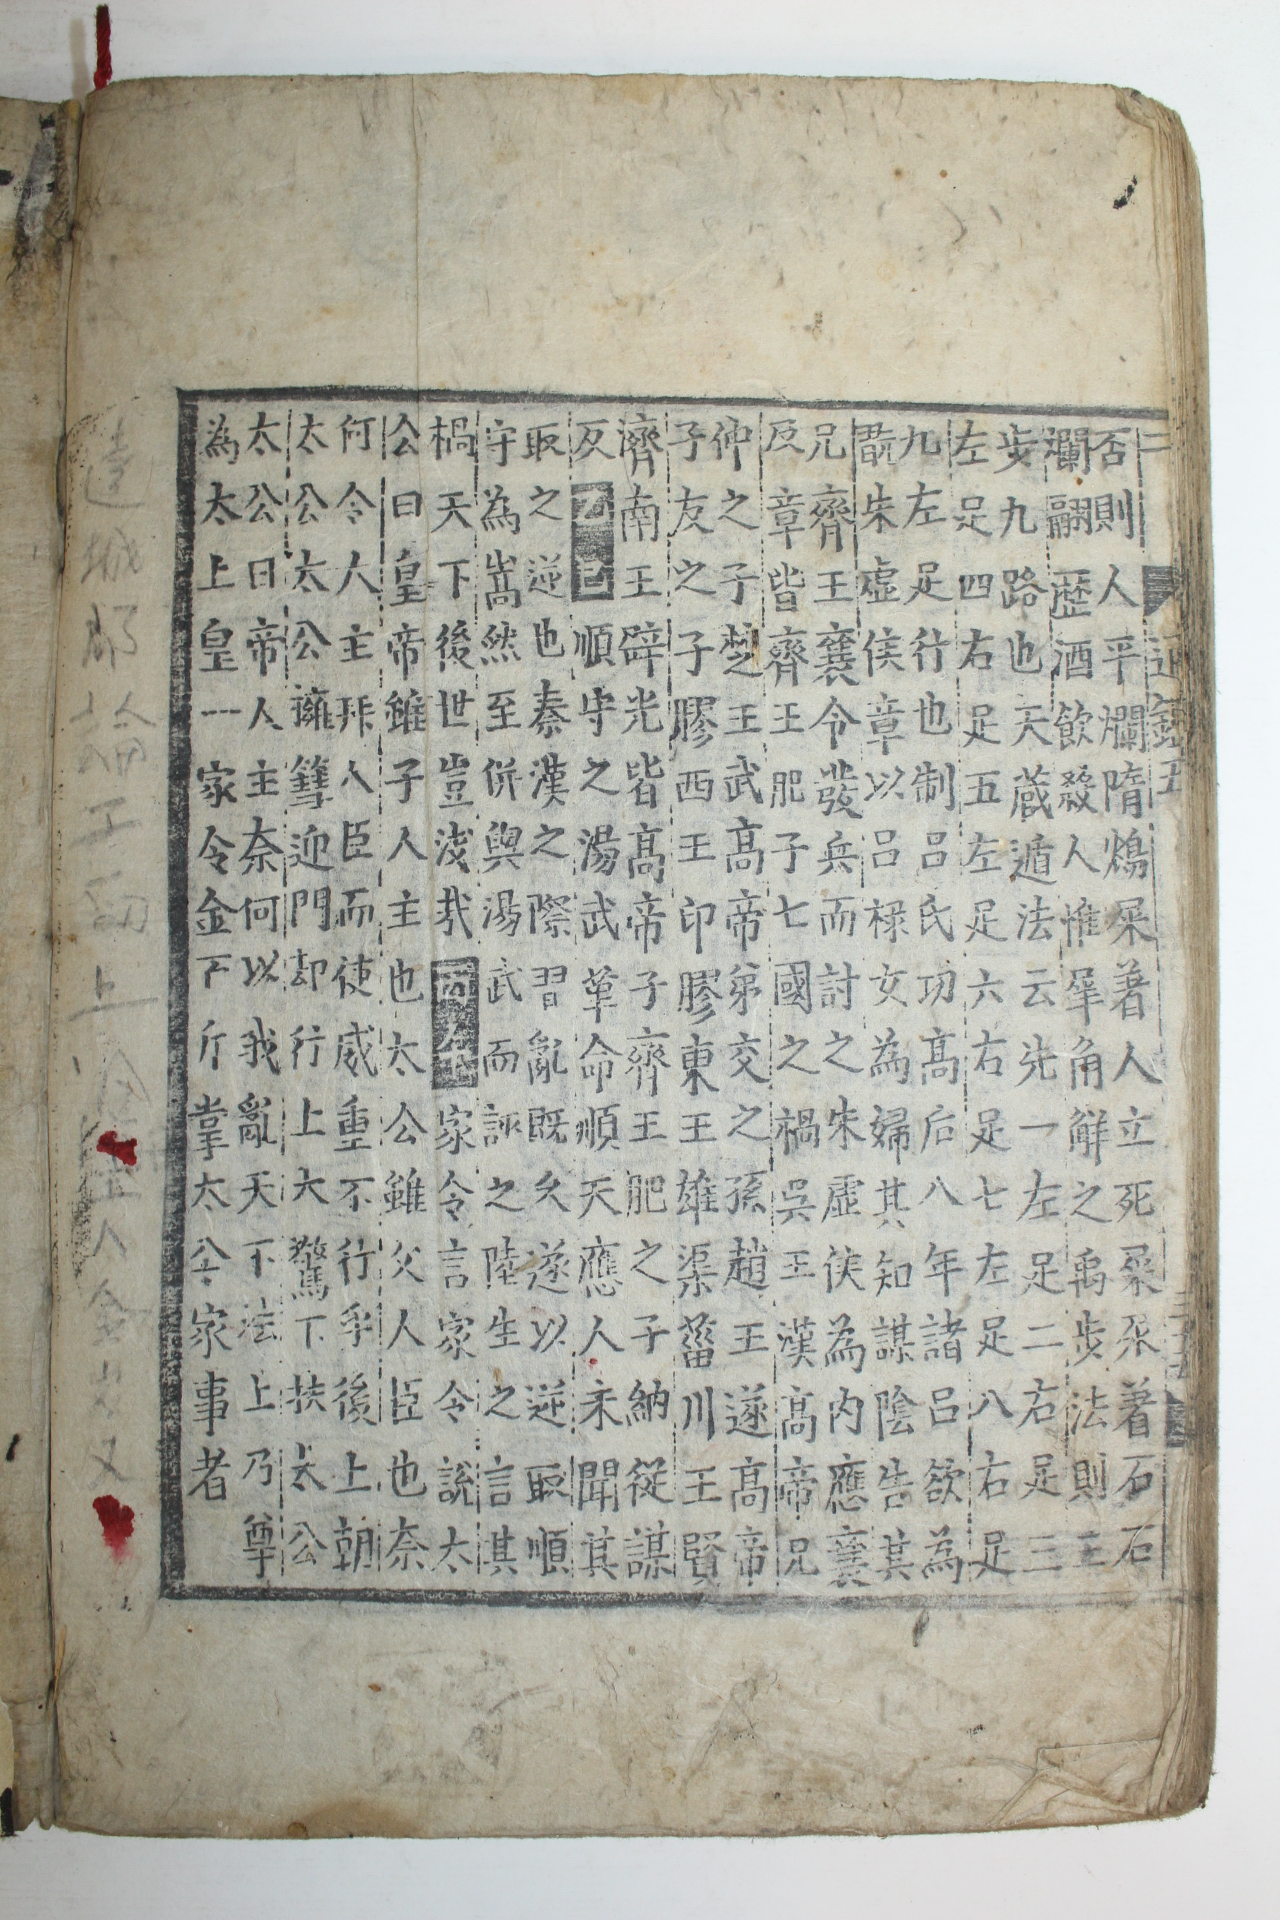 通鑑五
否則人平爛隋煬杘著人立死杘汖著石石
瀾翮歷酒飲殺人惟犀角觧之禹步法則主
步九路也天蔵遁法云先一左足二右足三
左足四右足五左足六右足七左足八右足
九左足行也制吕氏功高后八年諸吕欲為
朱虚侯章以吕祿女為婦其知謀陰告其
兄齊王襄令發兵而討之朱虚侯為内應襄
及章皆齊王肥子七國之禍吳王漢高帝兄
仲之子楚王武高帝弟交之孫趙王遂高帝
子友之子膠西王印膠東王雄渠菑川王賢
濟南王辟光皆高帝子齊王肥之子納從謀
反乙巳順守之湯武革命順天應人未聞其
取之逆也秦漢之際習亂既久遂以逆取順
守為嵩然至併與湯武而誣之陸生之言其
禍天下後世豈浅㢤丙午家令言家令說太
公曰皇帝雖子人主也太公雖父人臣也奈
何令人主拜人臣而使威重不行乎後上朝
太公太公擁篲迎門却行上大驚下扶太公
太公曰帝人主奈何以我亂天下法上乃尊
為太上皇一家令金下斤掌太公家事者